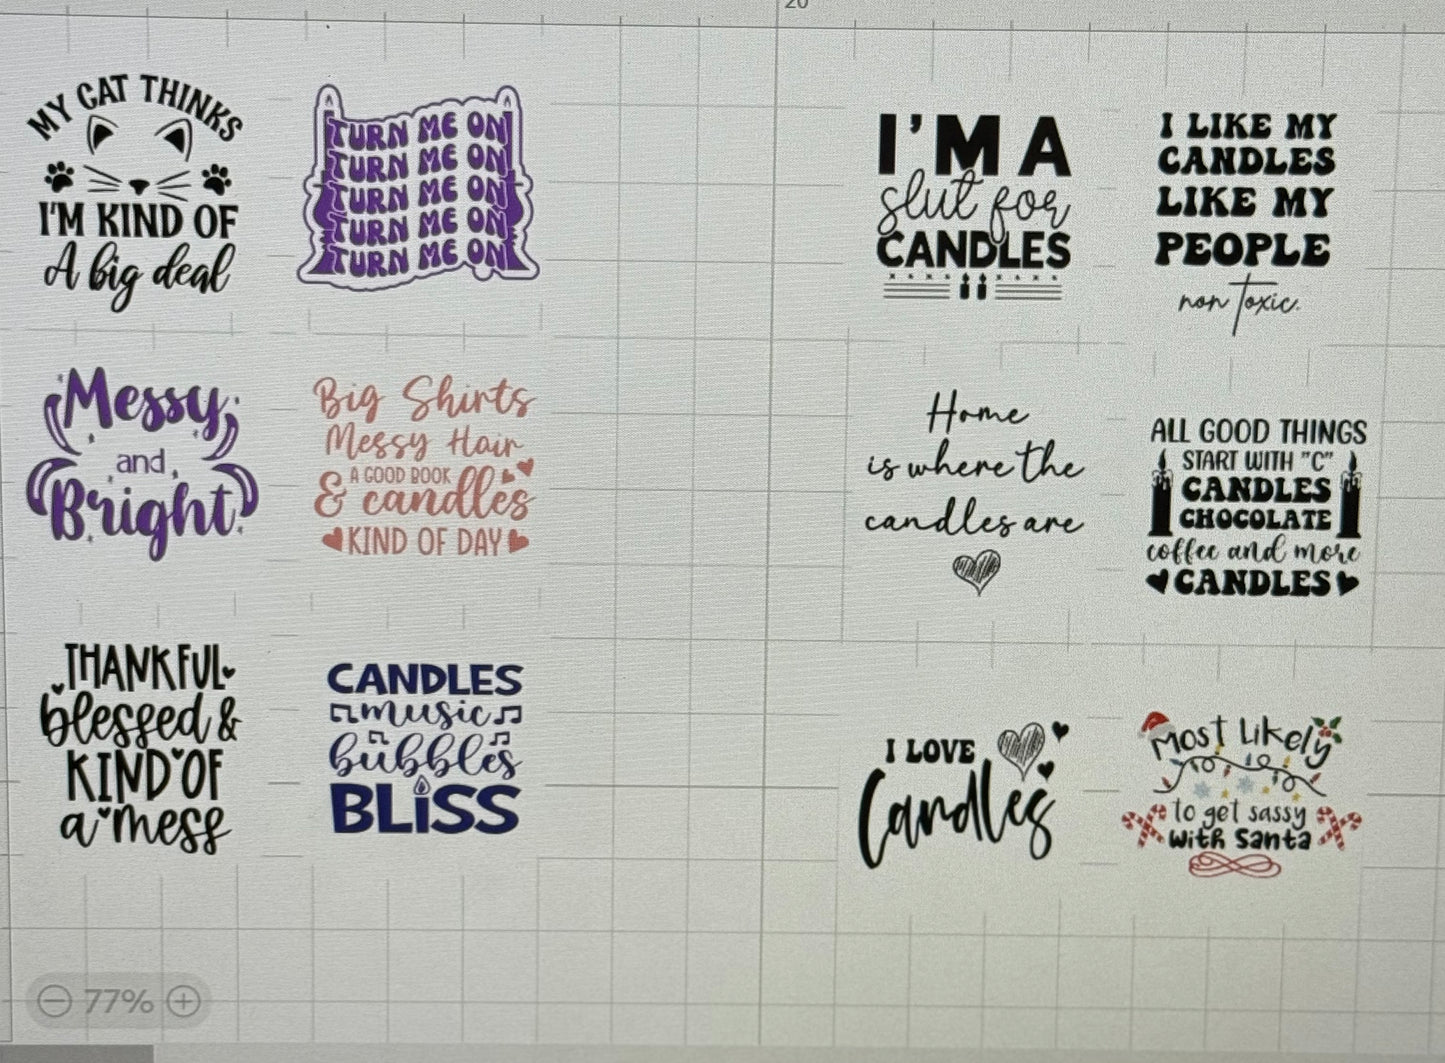 20
MY CAT THINKS
I'M KIND OF
A big deal
TURN ME ON
TURN ME ON
TURN ME ON
TURN ME ON
TURN ME ON
I'M A
slut for
CANDLES
I LIKE MY
CANDLES
LIKE MY
PEOPLE
non toxic.
Messy
and
Bright
Big Shirts
Messy Hair
A GOOD BOOK
& candles
KIND OF DAY
Home
is where the
candles are
ALL GOOD THINGS
START WITH "C"
CANDLES
CHOCOLATE
coffee and more
CANDLES
THANKFUL
blessed &
KIND OF
a mess
CANDLES
music
bubbles
BLiSS
I LOVE
Candles
Most Likely
to get sassy
with Santa
77%